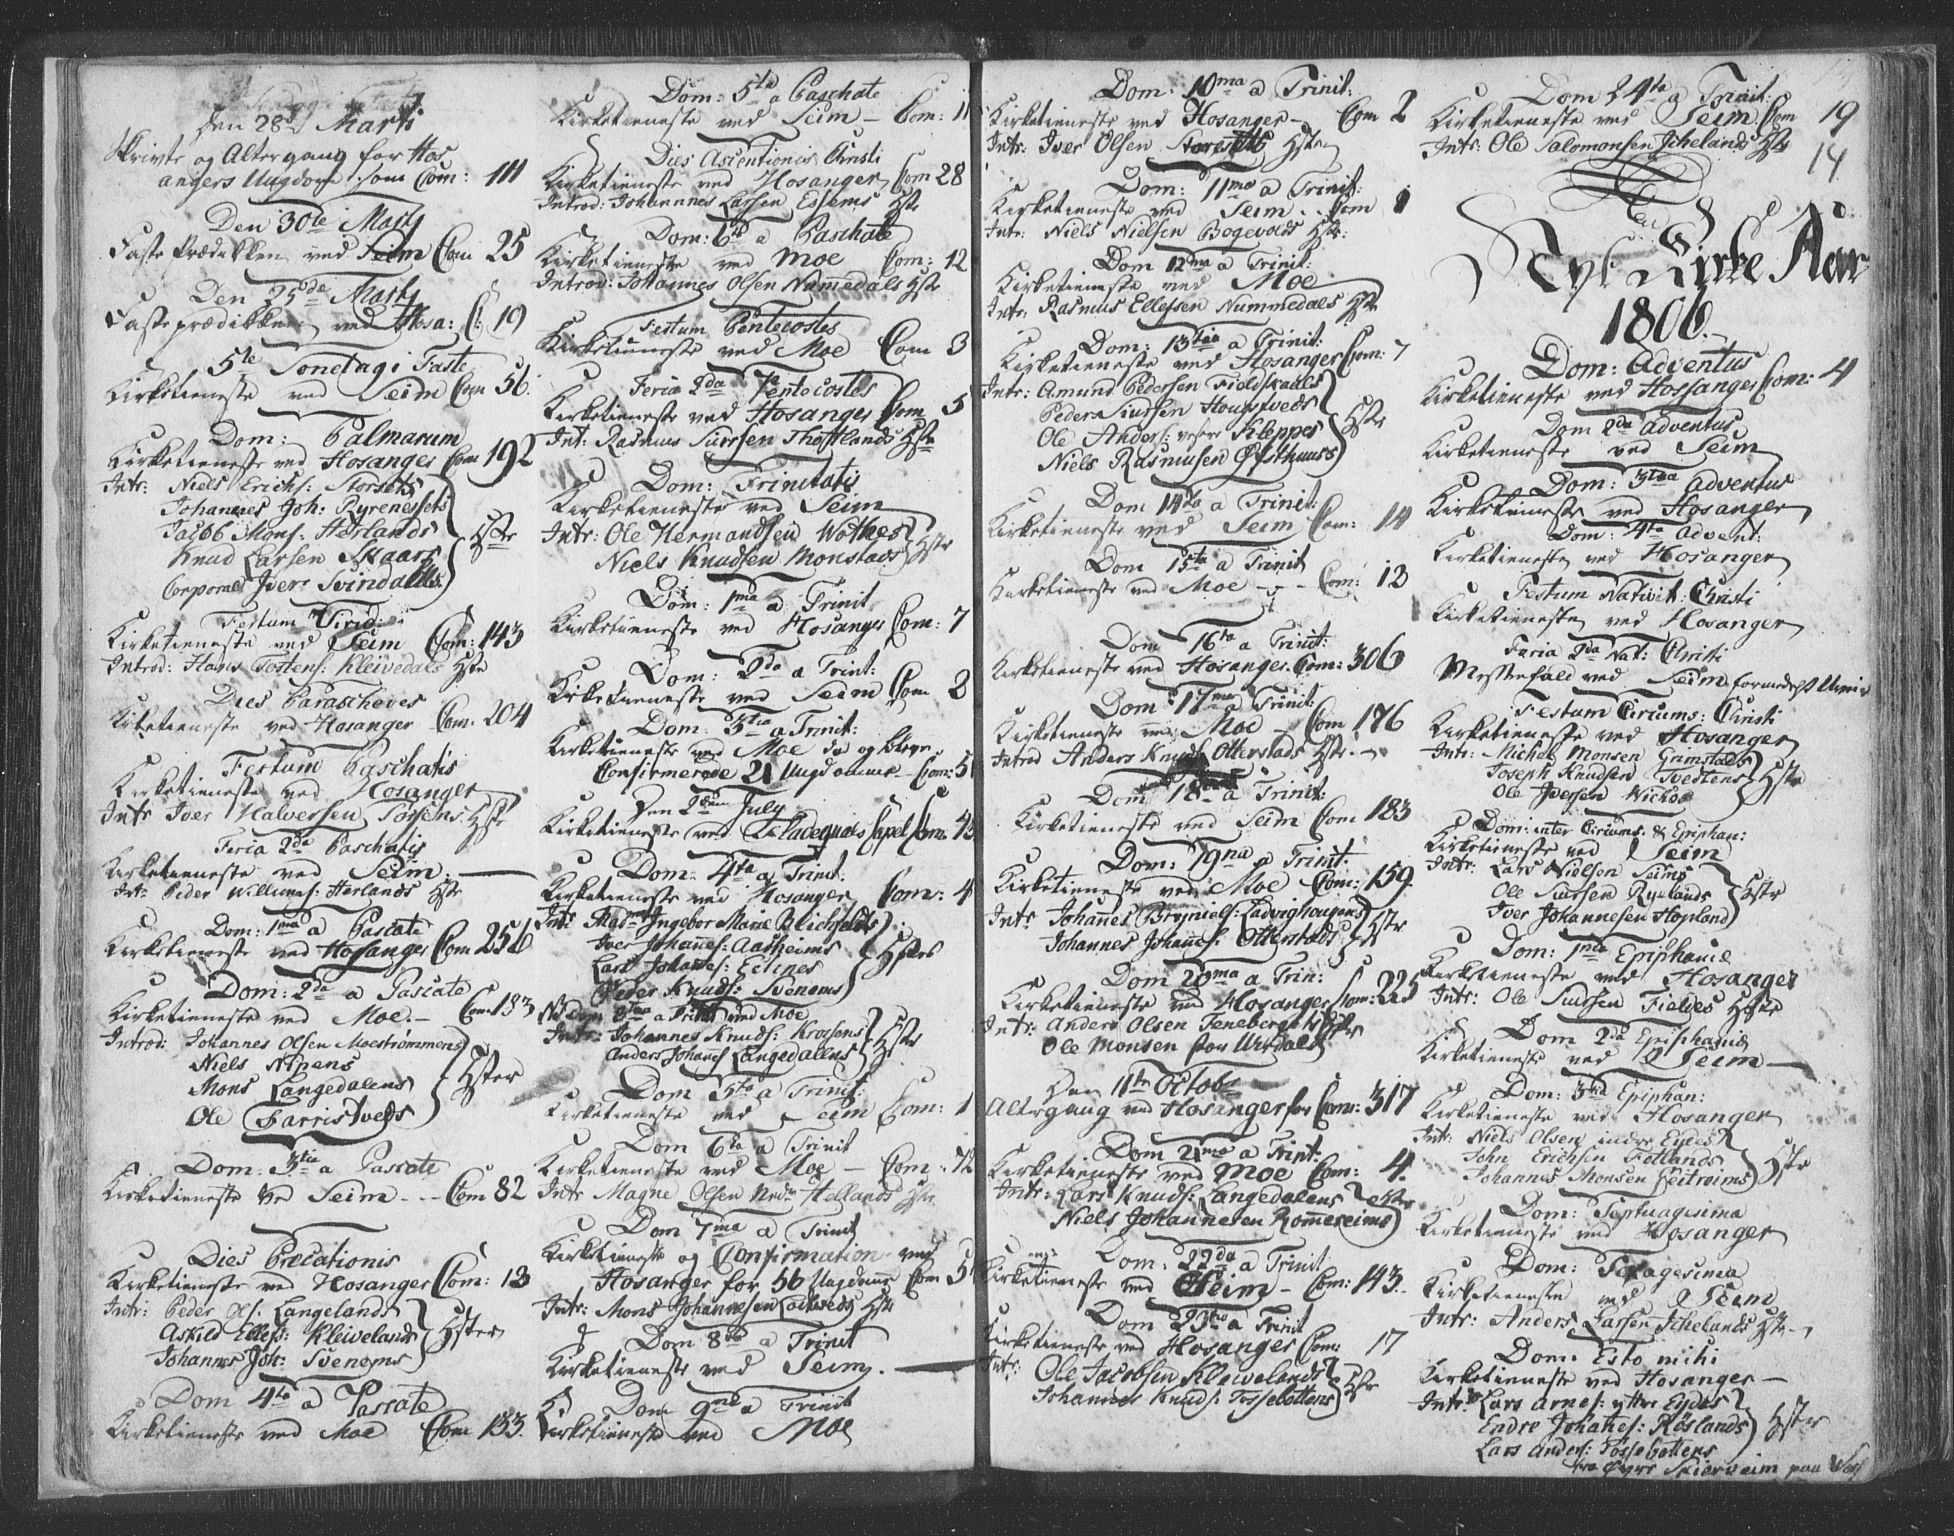 Den 28de Marti
Skrivte og Altergang for Hos
angers Ungdom som Com: 111
Den 30te Martj
Faste Prædikken ved Seim Com 25
Den 25de Martj
Faste prædikken ved Hosa: C: 19
5te Søndag i Faste
Kirketieneste ved Seim Com 56.
Dom: Palmarum
Kirketieneste ved Hosanger Com 192
Intr: Niels Erichs: Storsets
Johannes Joh: Ryrenessets
Jacob Mons: Herlands
Knud Larsen Skaars
Corporal Iver Svindalls
Hstr
Festum Virid:
Kirketieneste ved Seim Com: 143
Introd: Hans Tostens: Kleivedals Hstr
Dies Parascheves
Kirketieneste ved Hosanger Com: 204
Festum Paschatis
Kirketieneste ved Hosanger
Intr Iver Halversen Hstr
Feria 2da Paschatis
Kirketieneste ved Seim.
Intr Peder Willums: Herlands Hstr
Dom: 1ma a Pascate
Kirketieneste ved Hosanger Com 251
Dom: 2da a Pascate
Kirketieneste ved Moe. – Com 183
Introd: Johannes Olsen Moestrømmens
Niels Nipens
Mons Langedalens
Ole Farristveds
Hster
Dom: 3tia a Pascate
Kirketieneste ved Seim - - Com 82
Dies Precationis
Kirketieneste ved Hosanger Com: 13
Intr: Peder Ols: Langeland
Askild Ellefs: Kleivelands
Johannes Joh: Svenoms
Hster
Dom 4ta a Pascate
Kirketieneste ved Moe Com 133.
Dom: 5ta a Paschate
Kirketieneste ved Seim – Com: 11
Dies Ascentionis Christi
Kirketieneste ved Hosanger Com 28
Introd: Johannes Larsen Eisems Hstr
Dom: 6ta a Paschate
Kirketieneste ved Moe Com: 12
Introd: Johannes Olsen Namedals Hstr
Festum Pentecostes
Kirketieneste ved Moe Com 3
Feria 2da Pentecostes
Kirketieneste ved Hosanger Com 5
Int: Rasmus Siursen Thoftlands Hstr
Dom: Trinitatis
Kirketieneste ved Seim
Intr: Ole Hermandsen Wothes
Niels Knudsen Monstads
Hstr
Dom: 1ma a Trinit
Kirketieneste ved Hosanger Com: 7
Dom: 2da a Trinit:
Kirketieneste ved Seim Com 2
Dom: 3tia a Trinit:
Kirketieneste ved Moe da og blev
Confirmerede 21 Ungdomme – Com: 5
Den 2den July
Kirketieneste ved Capel Com
Dom: 4ta a Trinit.
Kirketieneste ved Hosanger Com: 4
Intr Madme Ingebor Marie Blichfeldts
Iver Johannes: Aasheims
Lars Johannes: Eitnes
Peder Knuds: Svenoms
Hstrs
NB Dom 3tia a Trinit ved Moe
Intr: Johannes Knuds: Krossens
Anders Johans: Langedalens
Hstr
Dom 5ta a Trinit:
Kirketieneste ved Seim Com: 1
Dom 6ta a Trinit
Kirketieneste ved Moe – Com: 12
Intr Magne Olsen Nedr Hellands Hstr
Dom 7ma a Trinit
Kirketieneste og Confirmation ved
Hosanger for 56 Ungdomme Com 5
Intr: Mons Johannesen Hstr
Dom 8va a Trinit
Kirketieneste ved Seim.
Dom 9na a Trinit
Kirketieneste ved Moe
Dom: 10ma a Trinit:
Kirketieneste ved Hosanger – Com 2
Intr: Iver Olsen Storsets Hstr
Dom: 11ma a Trinit:
Kirketieneste ved Seim . . Com 1
Intr: Niels Nielsen Bogevolds Hstr:
Dom 12ma a Trinit:
Kirketieneste ved Moe
Intr: Rasmus Ellefsen Nummedals Hstr
Dom: 13tia a Trinit:
Kirketieneste ved Hosanger Com: 7
Intr: Amund Pedersen Fieldskaals
Peder Siursen Hougstveds
Ole Anders: Kleppes
Niels Rasmusen Østhuuss
Hstr
Dom 14ta a Trinit:
Kirketieneste ved Seim Com: 14
Dom 15ta a Trinit
Kirketieneste ved Moe - - - Com: 13
Dom 16ta a Trinit:
Kirketieneste ved Hosanger. Com: 306
Dom: 17ma a Trinit:
Kirketieneste ved Moe – Com 176
Introd Anders Knuds Otterstads Hstr.
Dom 18va a Trinit:
Kirketieneste ved Seim Com 183
Dom: 19na a Trinit:
Kirketieneste ved Moe Com: 159.
Intr Johannes Bryniels: Ladvighougens
Johannes Johannes: Otterstads
Hstr
Dom 20ma a Trin:
Kirketieneste ved Hosanger Com: 225
Intr: Anders Olsen Tenebergets
Ole Monsen Urdals
Hstr
Den 11te Octobr
Altergang ved Hosanger for Com: 317
Dom 21ma a Trint:
Kirketieneste ved Moe Com: 4.
Intr: Lars Knuds: Langedalens
Niels Johannesen Romereims
Hstr
Dom: 22da a Trinit
Kirketieneste ved Seim – Com: 143.
Dom 23tia a Trinit
Kirketieneste ved Hosanger Com: 17
Intr: Ole Jacobsen Kleivelands
Johannes Knuds: Tossebottens
Hstr
Dom 24ta a Trinit:
Kirketieneste ved Seim Com 19
Intr: Ole Salomonsen Ichelands Hstr
14
Nyt Kirke Aar
1806.
Dom: Adventus
Kirketieneste ved Hossanger Com: 4
Dom 2da Adventus
Kirketieneste ved Seim
Dom: 3tia Adventus
Kirketieneste ved Hosanger
Dom: 4ta Advent:
Kirketieneste ved Hosanger
Festum Nativit: Christi
Kirketieneste ved Hosanger
Feria 2da Nat: Christi
Messefald ved Seim formedelst Uveir
Festum Circums: Christi
Kirketieneste ved Hosanger
Intr: Michel Monsen Grimstads
Joseph Knudsen Tvedtens
Ole Iversen Wichoe
Hstr
Dom: inter Circums. & Epiphan:
Kirketieneste ved Seim
Intr: Lars Nielsen Seims
Ole Siursen Ryelands
Iver Johannesen Hopland
Hstr
Dom: 1ma Epiphanie
Kirketieneste ved Hosanger
Intr: Ole Siursen Fieldes Hstr
Dom 2da Epiphanie
Kirketieneste ved Seim
Dom: 3tia Epiphan:
Kirketieneste ved Hosanger
Intr: Niels Olsen indre Eydes
John Erichsen Fotlands
Johannes Monsen Leitroims
Hstr
Dom: Septuagesima
Kirketieneste ved Hosanger
Dom: Sexagesima
Kirketieneste ved Seim
Intr: Anders Larsen Ichelands Hstr
Dom: Esto mihi
Kirketieneste ved Hosanger –
Intr: Lars Arnes: yttre Eydes
Endre Johannes: Røslands
Lars Anders: Tossebottens
Hstr
fra Øvre Skierveim paa Vos